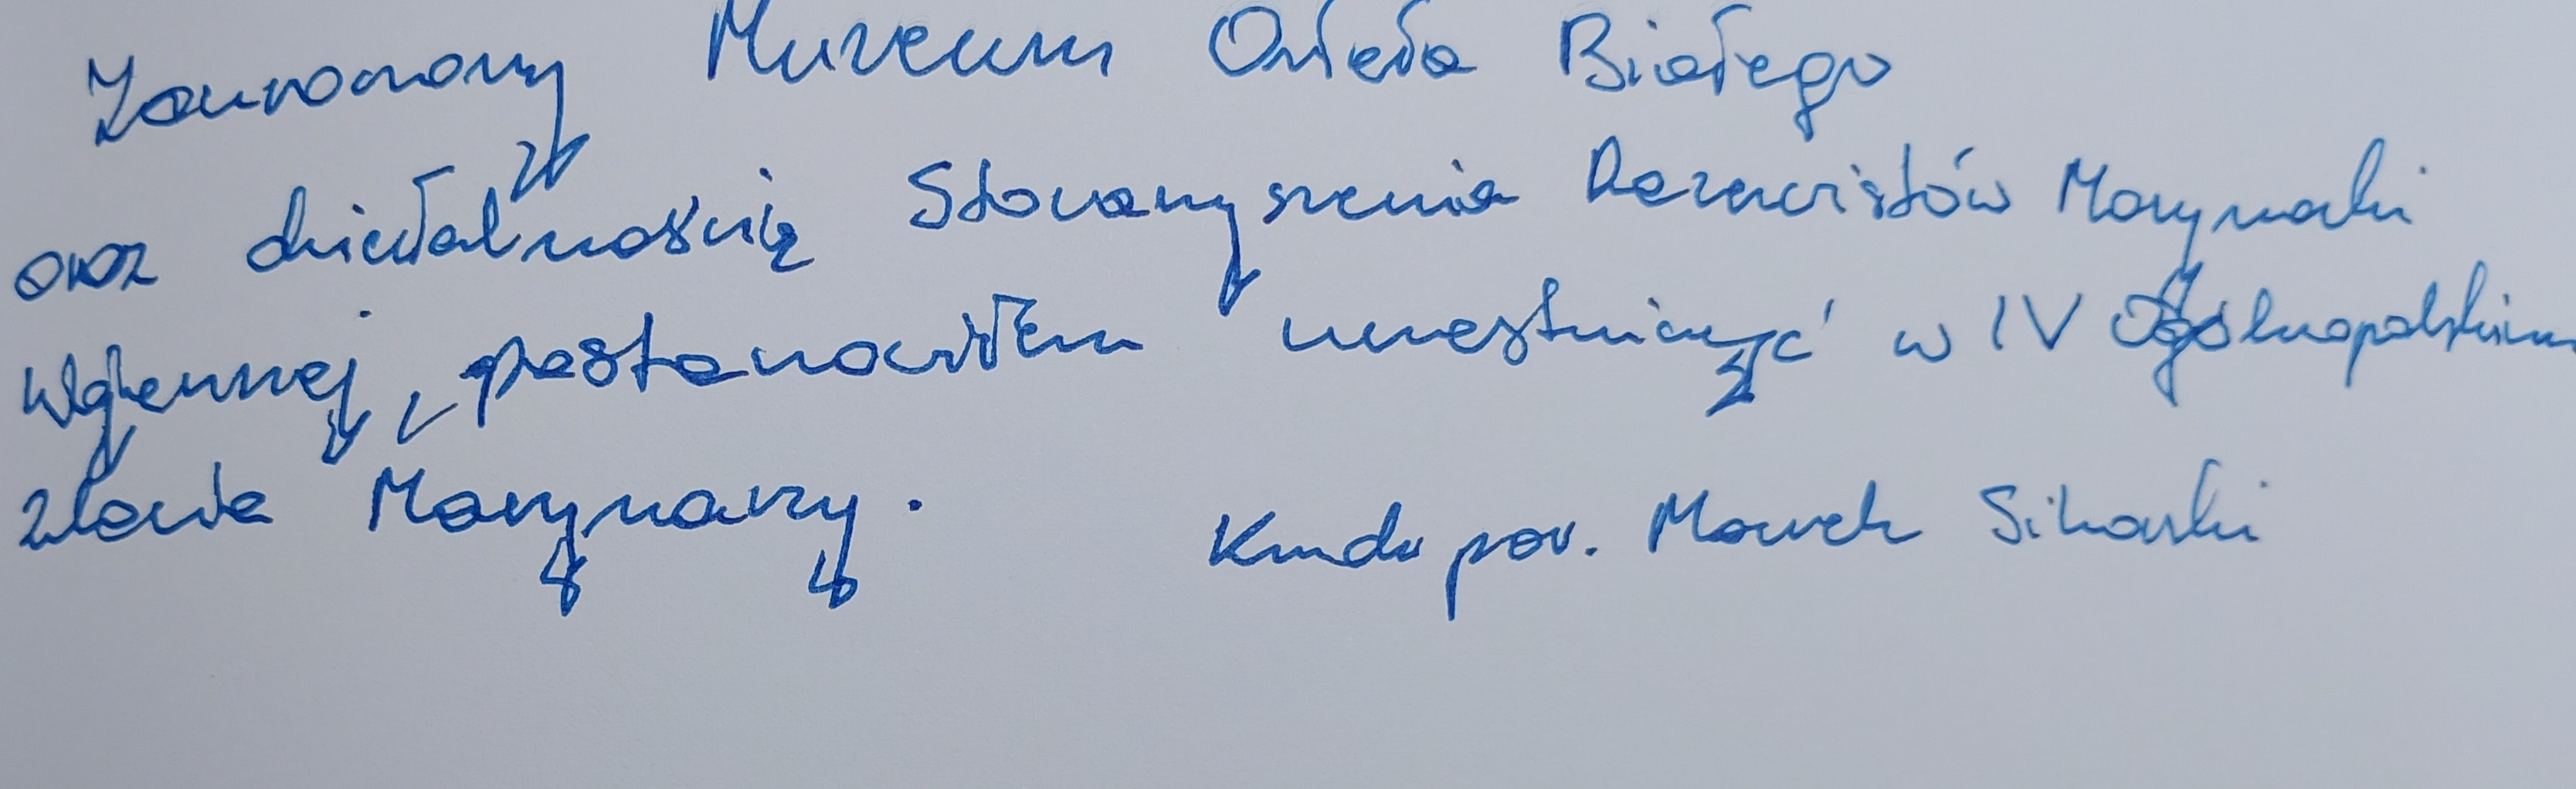 Zauroczony Muzeum Orła Białego
oraz działalnością Stowarzyszenia Rezerwistów Marynarki
Wojennej, postanowiłem uczestniczyć w IV Ogólnopolskim
zlocie Marynarzy.
Kmdr por. Marek Sikorski